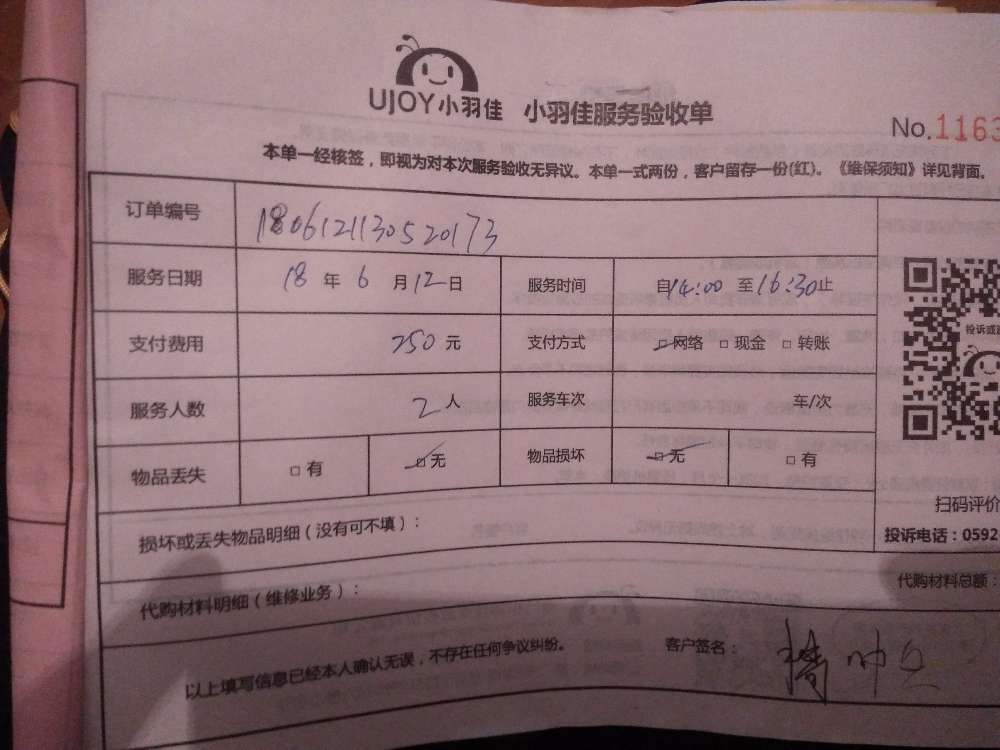 UJOY小羽佳 小羽佳服务验收单
No.1163
本单一经核签，即视为对本次服务验收无异议。本单一式两份，客户留存一份(红)。《维保须知》详见背面。
订单编号 1806121130520173
服务日期 18 年 6 月 12 日 服务时间 自14:00 至16:30止
支付费用 250 元 支付方式 □网络 □现金 □转账
服务人数 2 人 服务车次 车/次
物品丢失 □有 □无 物品损坏 □无 □有
扫码评价
损坏或丢失物品明细（没有可不填）：
投诉电话：0592
代购材料明细（维修业务）： 代购材料总额：
以上填写信息已经本人确认无误，不存在任何争议纠纷。 客户签名：